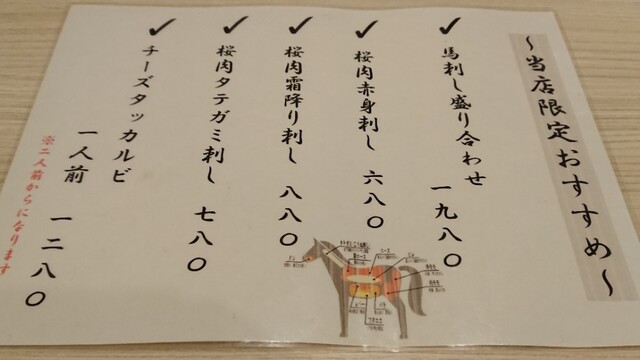 ～当店限定おすすめ～
馬刺し盛り合わせ
一九八〇
桜肉赤身刺し
六八〇
桜肉霜降り刺し
八八〇
桜肉タテガミ刺し
七八〇
チーズタッカルビ
一人前 一二八〇
※二人前からになります